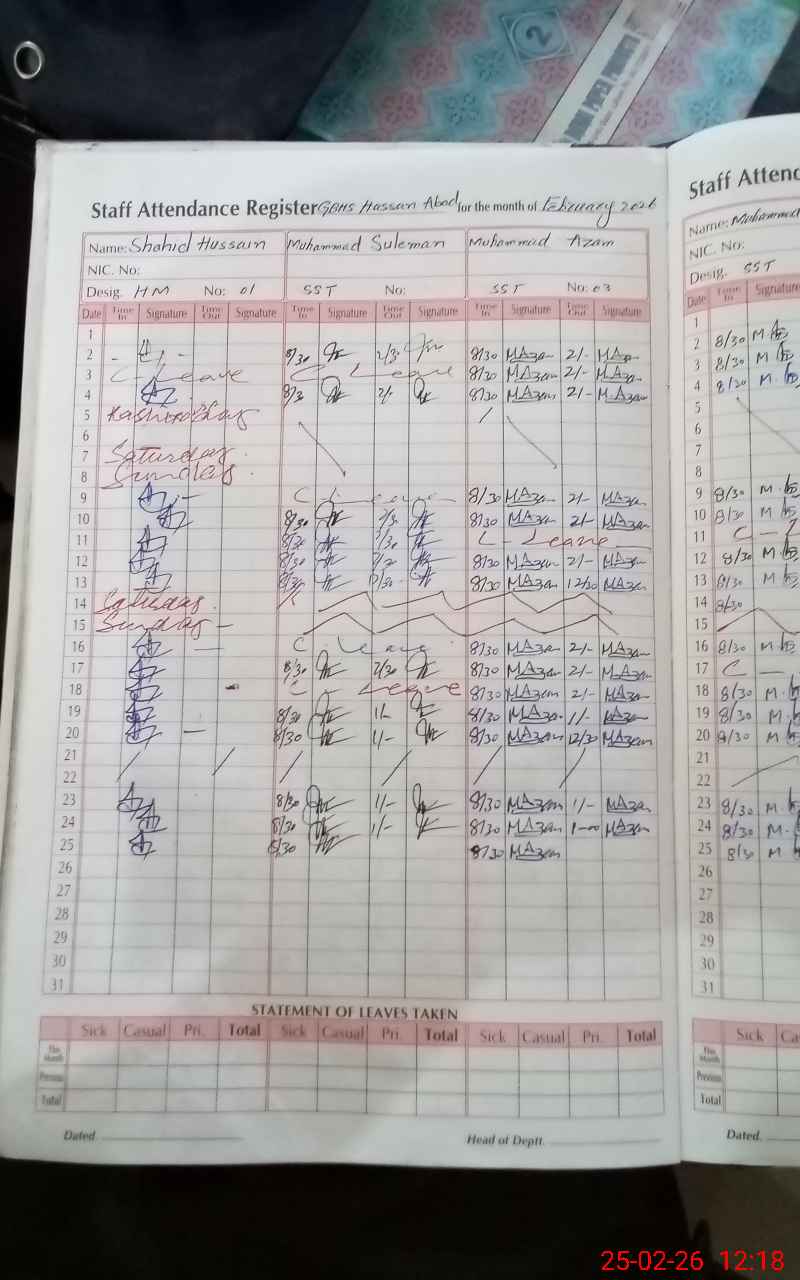 2
Staff Attendance Register GBHS Hassan Abad for the month of February 2026
Name: Shahid Hussain Muhammad Suleman Muhammad Azam
NIC. No:
Desig. HM No: 01 SST No: SST No: 03
Date Time In Signature Time Out Signature Time In Signature Time Out Signature Time In Signature Time Out Signature
1
2 8/30 2/30 8/30 MAzam 2/- MAzam
3 C-Leave C Leave 8/30 MAzam 2/- MAzam
4 8/30 2/- 8/30 MAzam 2/- M.Azam
5
6
7 Saturday.
8 Sunday.
9 C Leave 8/30 MAzam 2/- MAzam
10 8/30 2/30 8/30 MAzam 2/- MAzam
11 8/30 2/30 C- Leave
12 8/30 2/30 8/30 MAzam 2/- MAzam
13 8/30 12/30 8/30 MAzam 12/30 MAzam
14 Saturday.
15 Sunday -
16 C. Leave 8/30 MAzam 2/- MAzam
17 8/30 2/30 8/30 MAzam 2/- MAzam
18 C Leave 8/30 MAzam 2/- MAzam
19 8/30 1/- 8/30 MAzam 1/- MAzam
20 8/30 1/- 8/30 MAzam 12/30 MAzam
21
22
23 8/30 1/- 8/30 MAzam 1/- MAzam
24 8/30 1/- 8/30 MAzam 1-00 MAzam
25 8/30 8/30 MAzam
26
27
28
29
30
31
STATEMENT OF LEAVES TAKEN
Sick Casual Pri. Total Sick Casual Pri. Total Sick Casual Pri. Total
This Month
Previous
Total
Dated Head of Deptt.
Staff Attend
Name: Muhammad
NIC. No:
Desig. SST
Date Time In Signature
1
2 8/30
3 8/30
4 8/30
5
6
7
8
9 8/30
10 8/30
11 C -
12 8/30
13 8/30
14 8/30
15
16 8/30
17 C -
18 8/30
19 8/30
20 8/30
21
22
23 8/30
24 8/30
25 8/30
26
27
28
29
30
31
Sick Ca
This Month
Previous
Total
Dated.
25-02-26 12:18